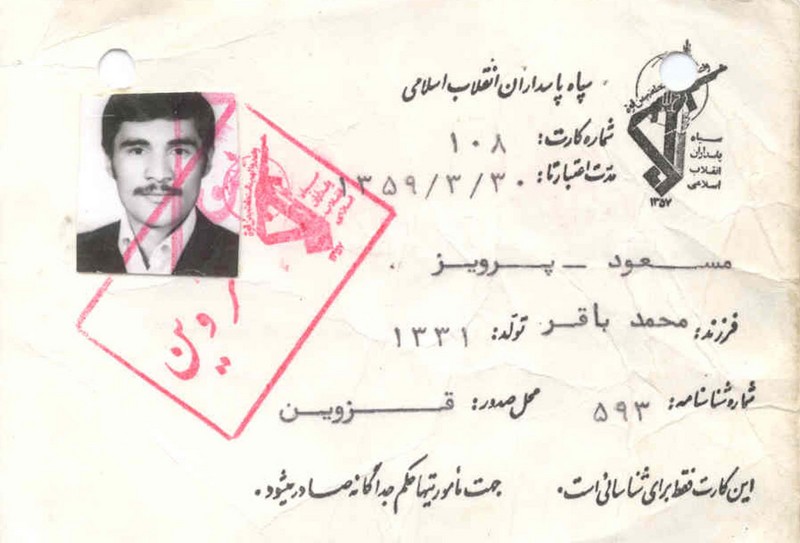 سپاه پاسداران انقلاب اسلامی
سپاه
پاسداران
انقلاب
اسلامی
۱۳۵۷
شماره کارت: ۱۰۸
مدت اعتبار تا: ۱۳۵۹/۳/۳۰
مسعود - پرویز
فرزند: محمد باقر تولد: ۱۳۳۱
شماره شناسنامه: ۵۹۳ محل صدور: قزوین
این کارت فقط برای شناسائی است. جهت مأموریتها حکم جداگانه صادر میشود.